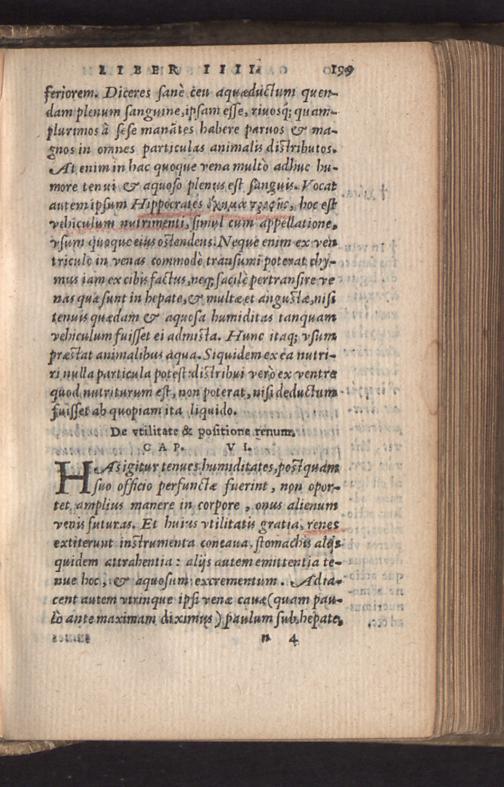 LIBER IIII. 199
feriorem. Diceres sanè ceu aquæductum quen-
dam plenum sanguine, ipsam esse, riuosq; quam-
plurimos à sese manātes habere paruos & ma-
gnos in omnes particulas animalis distributos.
At enim in hac quoque vena multò adhuc hu-
more tenui & aquoso plenus est sanguis. Vocat
autem ipsum Hippocrates ὄχημα τροφῆς, hoc est
vehiculum nutrimenti, simul cum appellatione,
vsum quoque eius ostendens. Neque enim ex ven
triculo in venas commodè transumi poterat chy-
mus iam ex cibis factus, neq; facilè pertransire ve
nas quæ sunt in hepate, & multæ et angustæ, nisi
tenuis quædam & aquosa humiditas tanquam
vehiculum fuisset ei admista. Hunc itaq; vsum
præstat animalibus aqua. Siquidem ex ea nutri-
ri nulla particula potest: distribui verò ex ventre
quod nutriturum est, non poterat, nisi deductum
fuisset ab quopiam ita liquido.
De vtilitate & positione renum.
CAP. VI.
HAs igitur tenues humiditates, postquam
suo officio perfunctæ fuerint, non opor-
tet amplius manere in corpore, onus alienum
venis futuras. Et huius vtilitatis gratia, renes
extiterunt instrumenta concaua, stomachis alijs
quidem attrahentia: alijs autem emittentia te-
nue hoc, & aquosum excrementum. Adia-
cent autem vtrinque ipsi venæ cauæ (quam pau-
lo ante maximam diximus) paulum sub hepate,
n 4